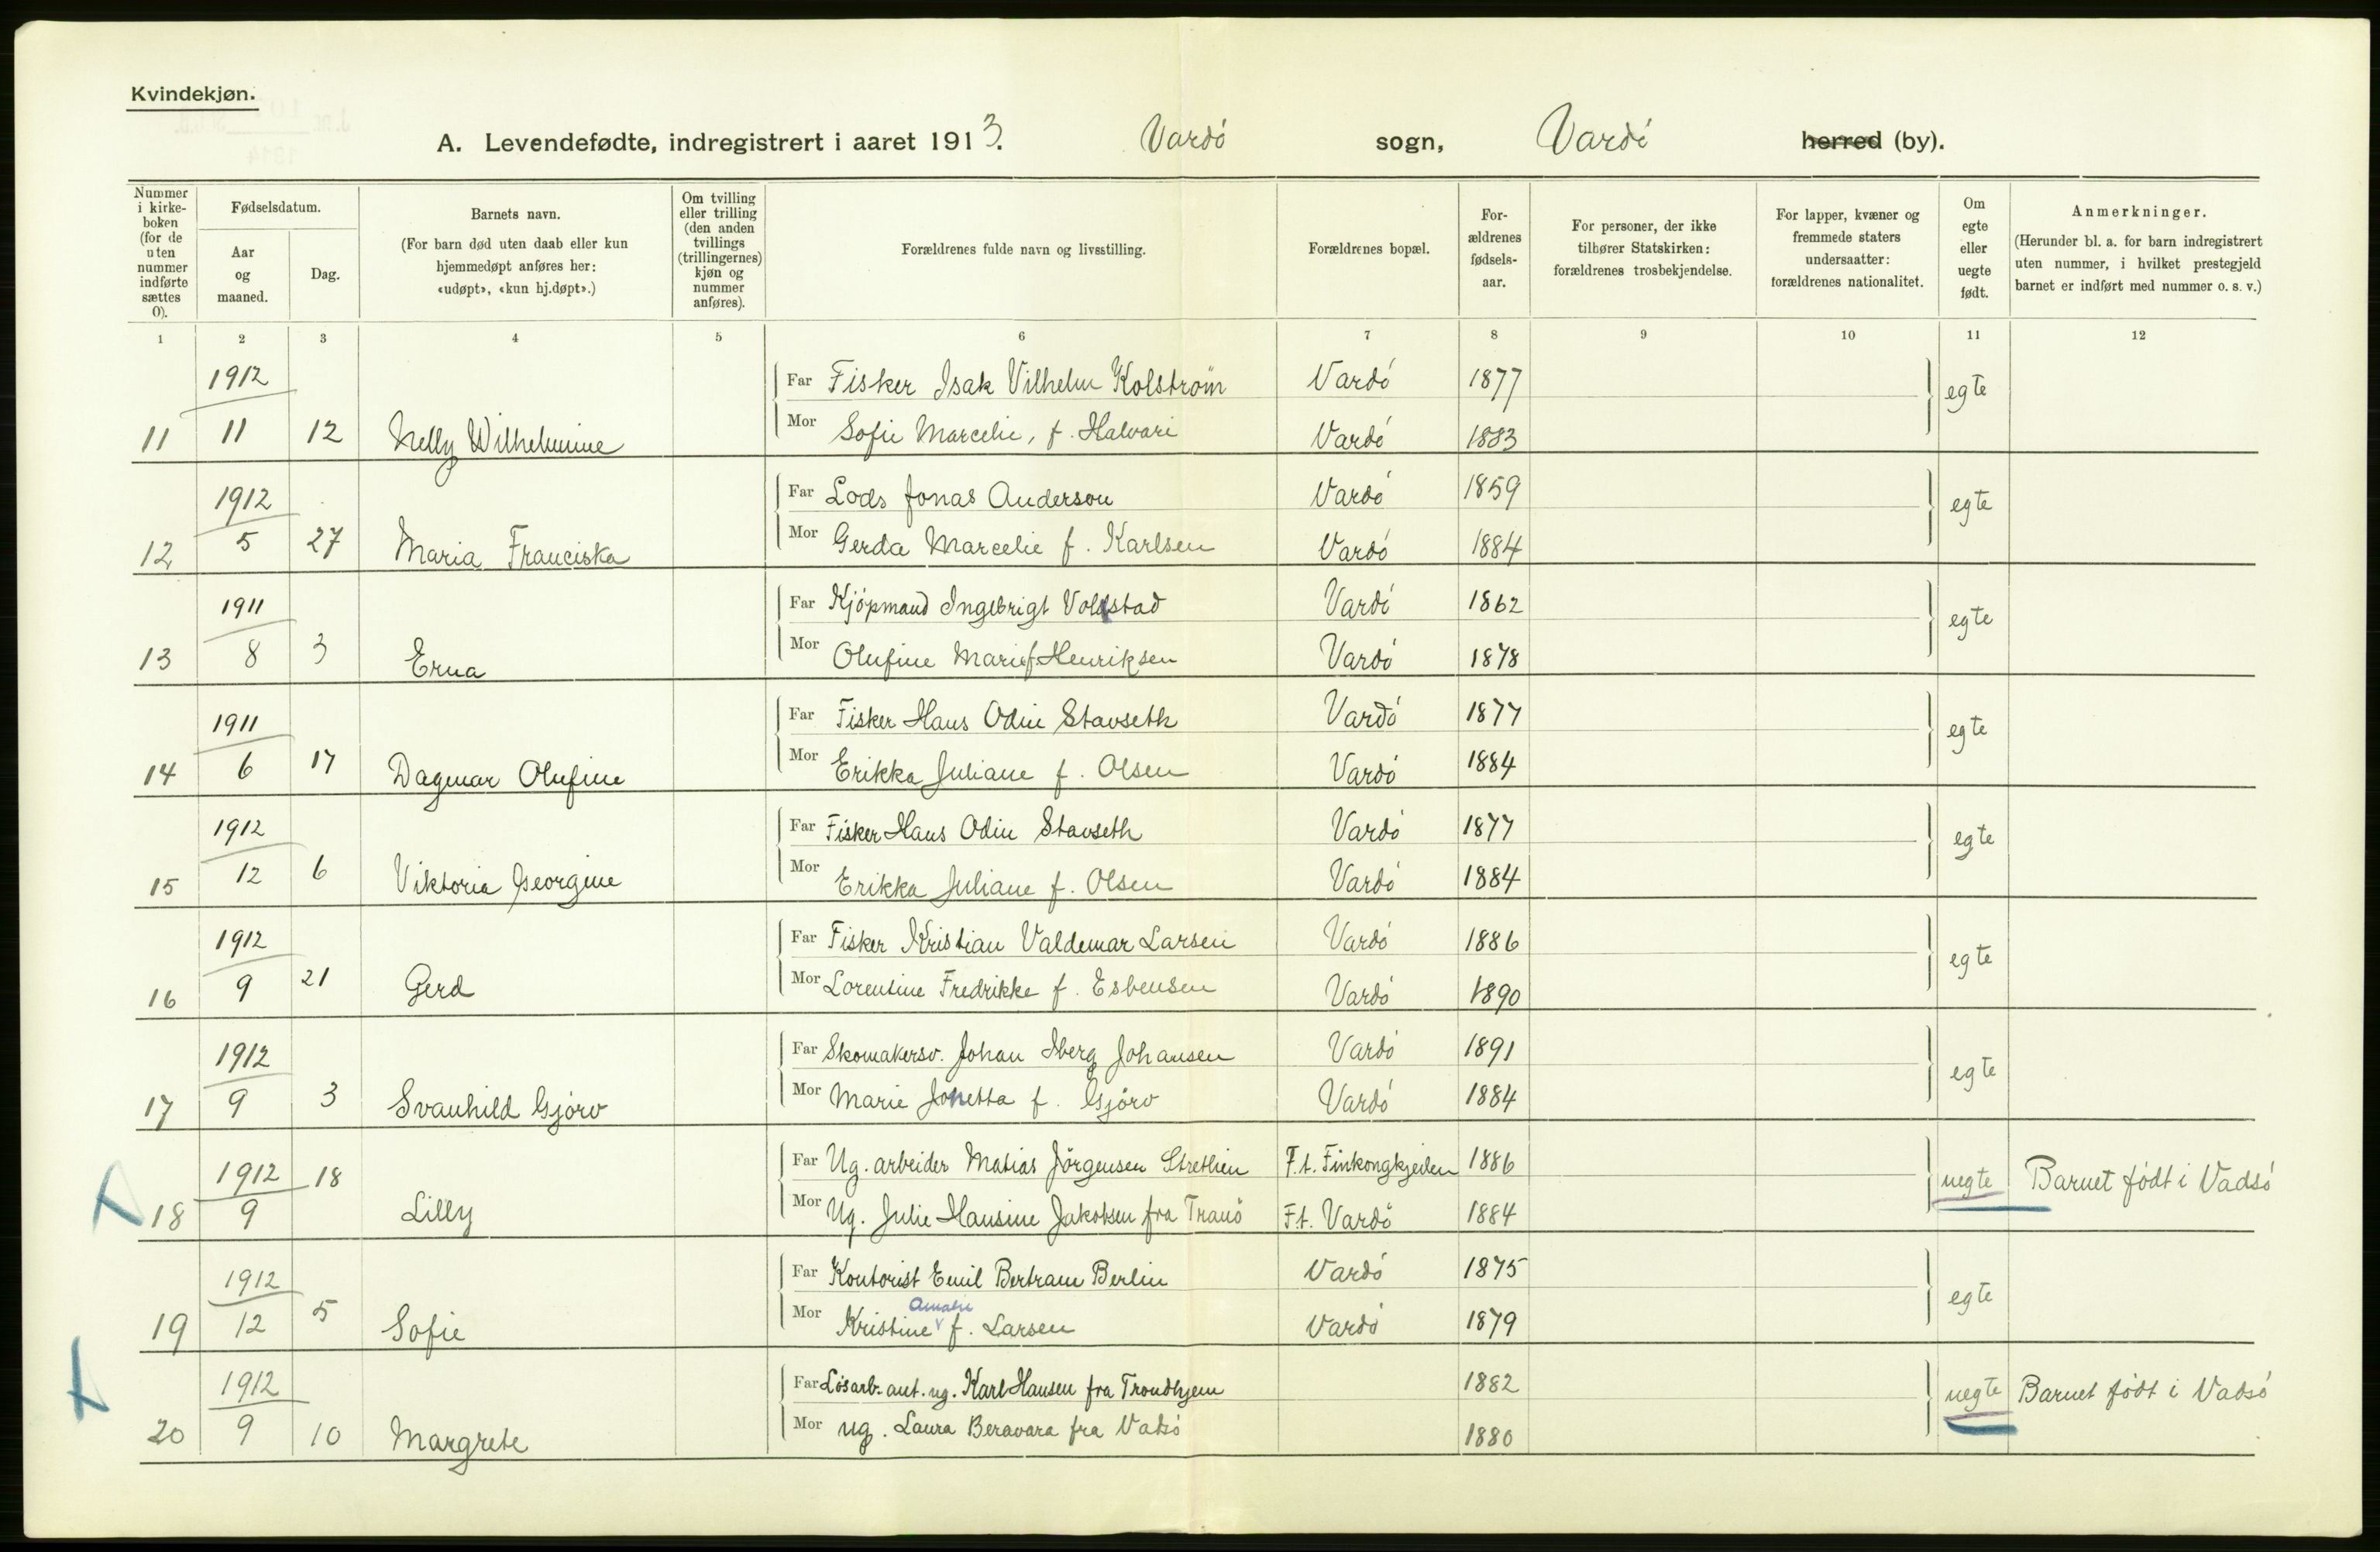 Kvindekjøn.
A. Levendefødte, indregistrert i aaret 1913. Vardö sogn, Vardö herred (by).
Nummer i kirke-boken (for de uten nummer indførte sættes 0).
Fødselsdatum.
Aar og maaned.
Dag.
Barnets navn.
(For barn død uten daab eller kun hjemmedøpt anføres her: «udøpt», «kun hj.døpt».)
Om tvilling eller trilling (den anden tvillings (trillingernes) kjøn og nummer anføres).
Forældrenes fulde navn og livsstilling.
Forældrenes bopæl.
For-ældrenes fødsels-aar.
For personer, der ikke tilhører Statskirken: forældrenes trosbekjendelse.
For lapper, kvæner og fremmede staters undersaatter: forældrenes nationalitet.
Om egte eller uegte født.
Anmerkninger.
(Herunder bl. a. for barn indregistrert uten nummer, i hvilket prestegjeld barnet er indført med nummer o. s. v.)
1 2 3 4 5 6 7 8 9 10 11 12
1912 Far Fisker Isak Vilhelm Kolström Vardö 1877 egte
11 11 12 Nelly Wilhelmine Mor Sofie Marcelie, f. Halvari Vardö 1883
1912 Far Lods Jonas Anderson Vardö 1859 egte
12 5 27 Maria Franciska Mor Gerda Marcelie f. Karlsen Vardö 1884
1911 Far Kjöpmand Ingebrigt Voldstad Vardö 1862 egte
13 8 3 Erna Mor Olufine Marie f. Henriksen Vardö 1878
1911 Far Fisker Hans Odin Stavseth Vardö 1877 egte
14 6 17 Dagmar Olufine Mor Erikka Juliane f. Olsen Vardö 1884
1912 Far Fisker Hans Odin Stavseth Vardö 1877 egte
15 12 6 Viktoria Georgine Mor Erikka Juliane f. Olsen Vardö 1884
1912 Far Fisker Kristian Valdemar Larsen Vardö 1886 egte
16 9 21 Gerd Mor Lorentine Fredrikke f. Esbensen Vardö 1890
1912 Far Skomakersv. Johan Iberg Johansen Vardö 1891 egte
17 9 3 Svanhild Gjörv Mor Marie Jonetta f. Gjörv Vardö 1884
1912 18 Far Ug. arbeider Matias Jörgensen Strethien F.t. Finkongkjeilen 1886 uegte Barnet född i Vadsö
18 9 Lilly Mor Ug. Julie Hansine Jakobsen fra Tranö F.t. Vardö 1884
1912 Far Kontorist Emil Bertram Berlin Vardö 1875 egte
19 12 5 Sofie Mor Kristine Amalie f. Larsen Vardö 1879
1912 Far Lösarb. ant. ug. Karl Hansen fra Trondhjem 1882 uegte Barnet född i Vadsö
20 9 10 Margrete Mor ug. Laura Beravara fra Vadsö 1880